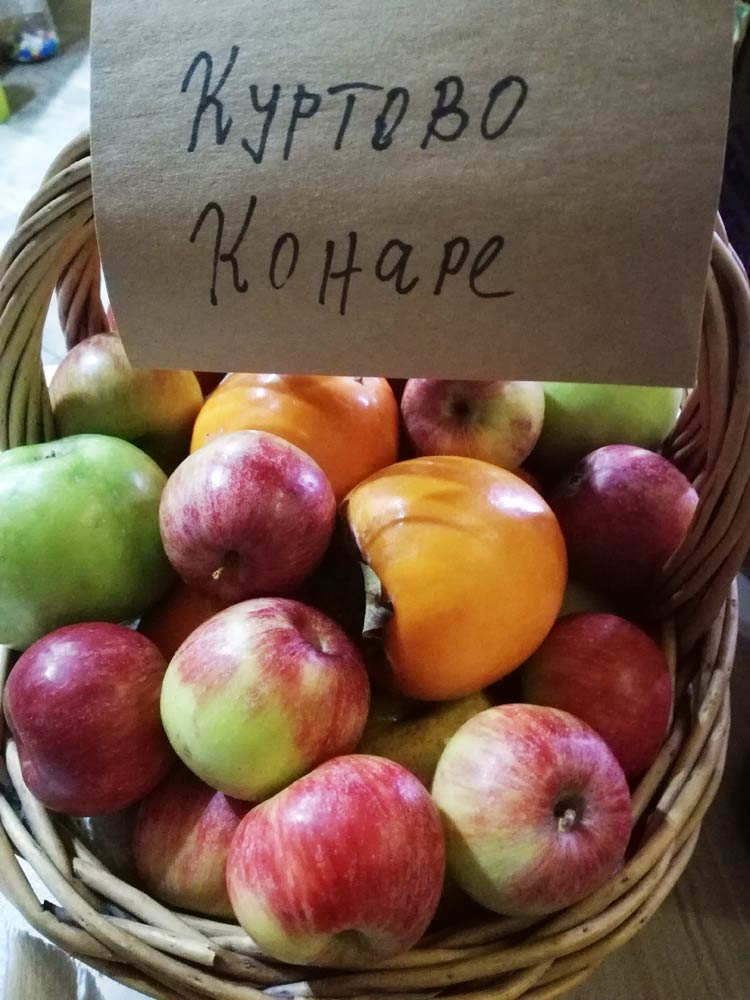 Куртово
Конаре